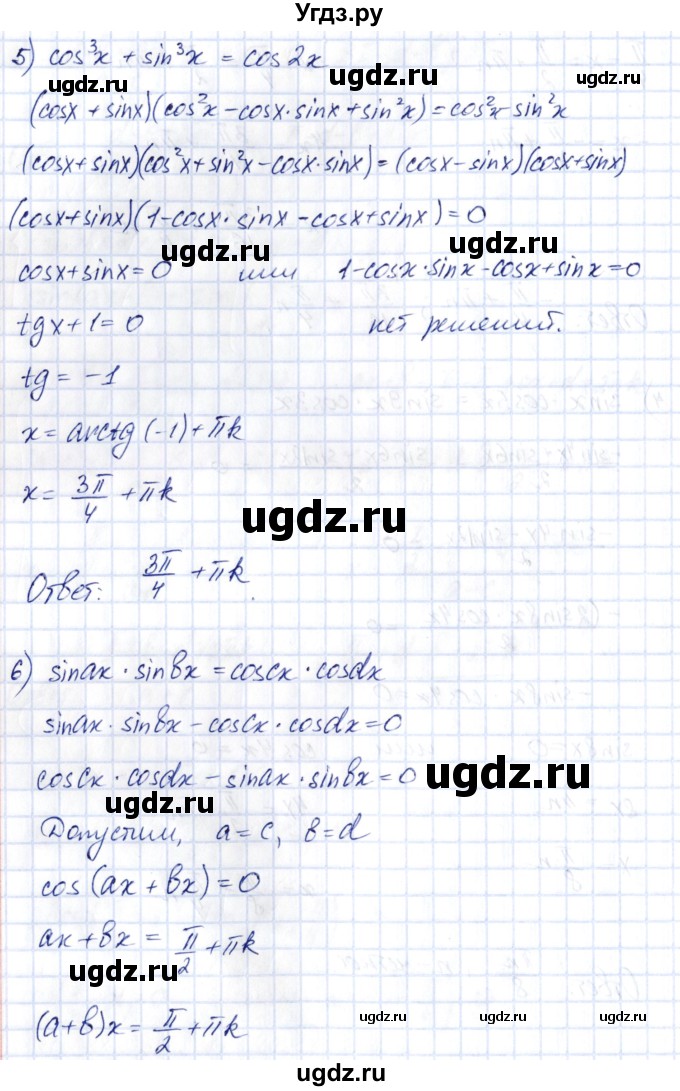 Угдз.ру
5) cos³x + sin³x = cos2x
(cosx + sinx)(cos²x - cosx·sinx + sin²x) = cos²x - sin²x
(cosx + sinx)(cos²x + sin²x - cosx·sinx) = (cosx - sinx)(cosx + sinx)
(cosx + sinx)(1 - cosx·sinx - cosx + sinx) = 0
ugdz.ru ugdz.ru
cosx + sinx = 0 или 1 - cosx·sinx - cosx + sinx = 0
tgx + 1 = 0 нет решений.
tg = -1
x = arctg(-1) + πk
x = 3π/4 + πk
ugdz.ru
Ответ: 3π/4 + πk.
6) sinax · sinbx = coscx · cosdx
sinax · sinbx - coscx · cosdx = 0
coscx · cosdx - sinax · sinbx = 0
ugdz.ru ugdz.ru
Допустим, a = c, b = d
cos(ax + bx) = 0
ax + bx = π/2 + πk
ugdz.ru
(a + b)x = π/2 + πk
ugdz.ru ugdz.ru